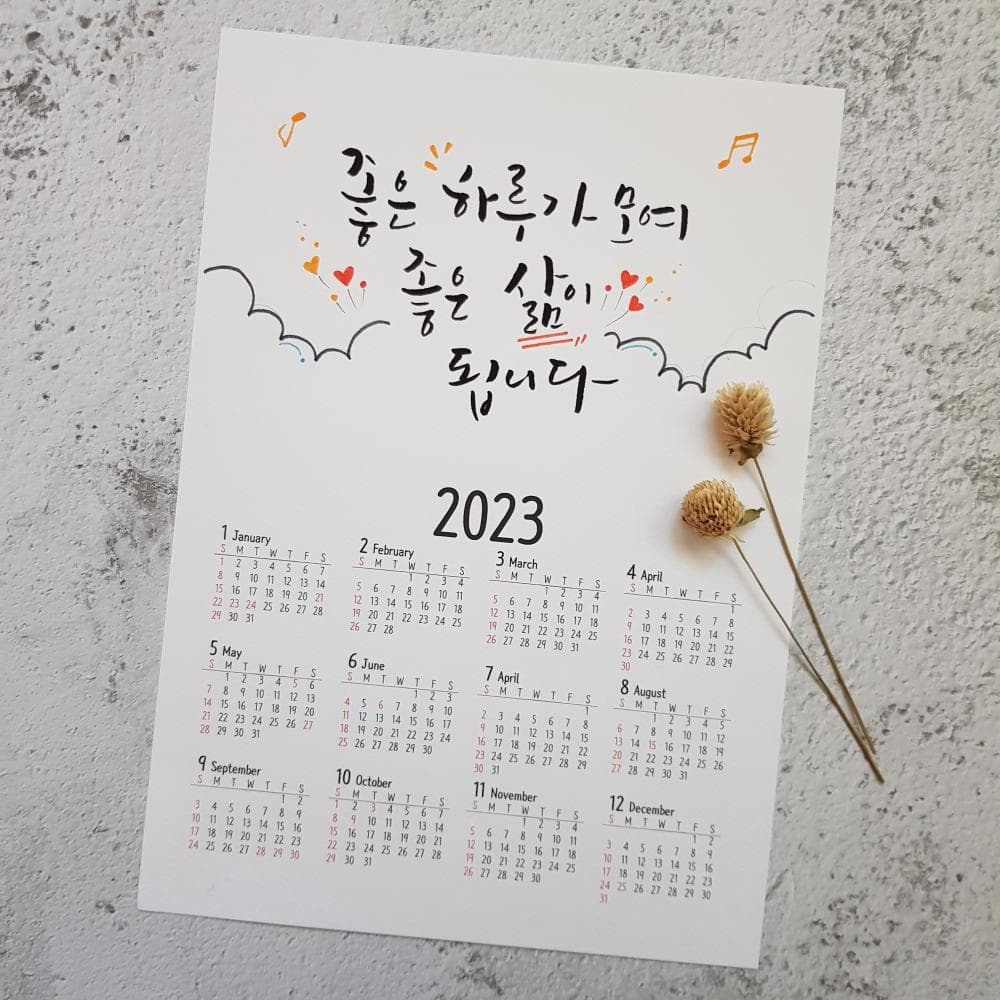 좋은 하루가 모여
좋은 삶이
됩니다
2023
1 January
S M T W T F S
1 2 3 4 5 6 7
8 9 10 11 12 13 14
15 16 17 18 19 20 21
22 23 24 25 26 27 28
29 30 31
2 February
S M T W T F S
1 2 3 4
5 6 7 8 9 10 11
12 13 14 15 16 17 18
19 20 21 22 23 24 25
26 27 28
3 March
S M T W T F S
1 2 3 4
5 6 7 8 9 10 11
12 13 14 15 16 17 18
19 20 21 22 23 24 25
26 27 28 29 30 31
4 April
S M T W T F S
1
2 3 4 5 6 7 8
9 10 11 12 13 14 15
16 17 18 19 20 21 22
23 24 25 26 27 28 29
30
5 May
S M T W T F S
1 2 3 4 5 6
7 8 9 10 11 12 13
14 15 16 17 18 19 20
21 22 23 24 25 26 27
28 29 30 31
6 June
S M T W T F S
1 2 3
4 5 6 7 8 9 10
11 12 13 14 15 16 17
18 19 20 21 22 23 24
25 26 27 28 29 30
7 April
S M T W T F S
1
2 3 4 5 6 7 8
9 10 11 12 13 14 15
16 17 18 19 20 21 22
23 24 25 26 27 28 29
30 31
8 August
S M T W T F S
1 2 3 4 5
6 7 8 9 10 11 12
13 14 15 16 17 18 19
20 21 22 23 24 25 26
27 28 29 30 31
9 September
S M T W T F S
1 2
3 4 5 6 7 8 9
10 11 12 13 14 15 16
17 18 19 20 21 22 23
24 25 26 27 28 29 30
10 October
S M T W T F S
1 2 3 4 5 6 7
8 9 10 11 12 13 14
15 16 17 18 19 20 21
22 23 24 25 26 27 28
29 30 31
11 November
S M T W T F S
1 2 3 4
5 6 7 8 9 10 11
12 13 14 15 16 17 18
19 20 21 22 23 24 25
26 27 28 29 30
12 December
S M T W T F S
1 2
3 4 5 6 7 8 9
10 11 12 13 14 15 16
17 18 19 20 21 22 23
24 25 26 27 28 29 30
31